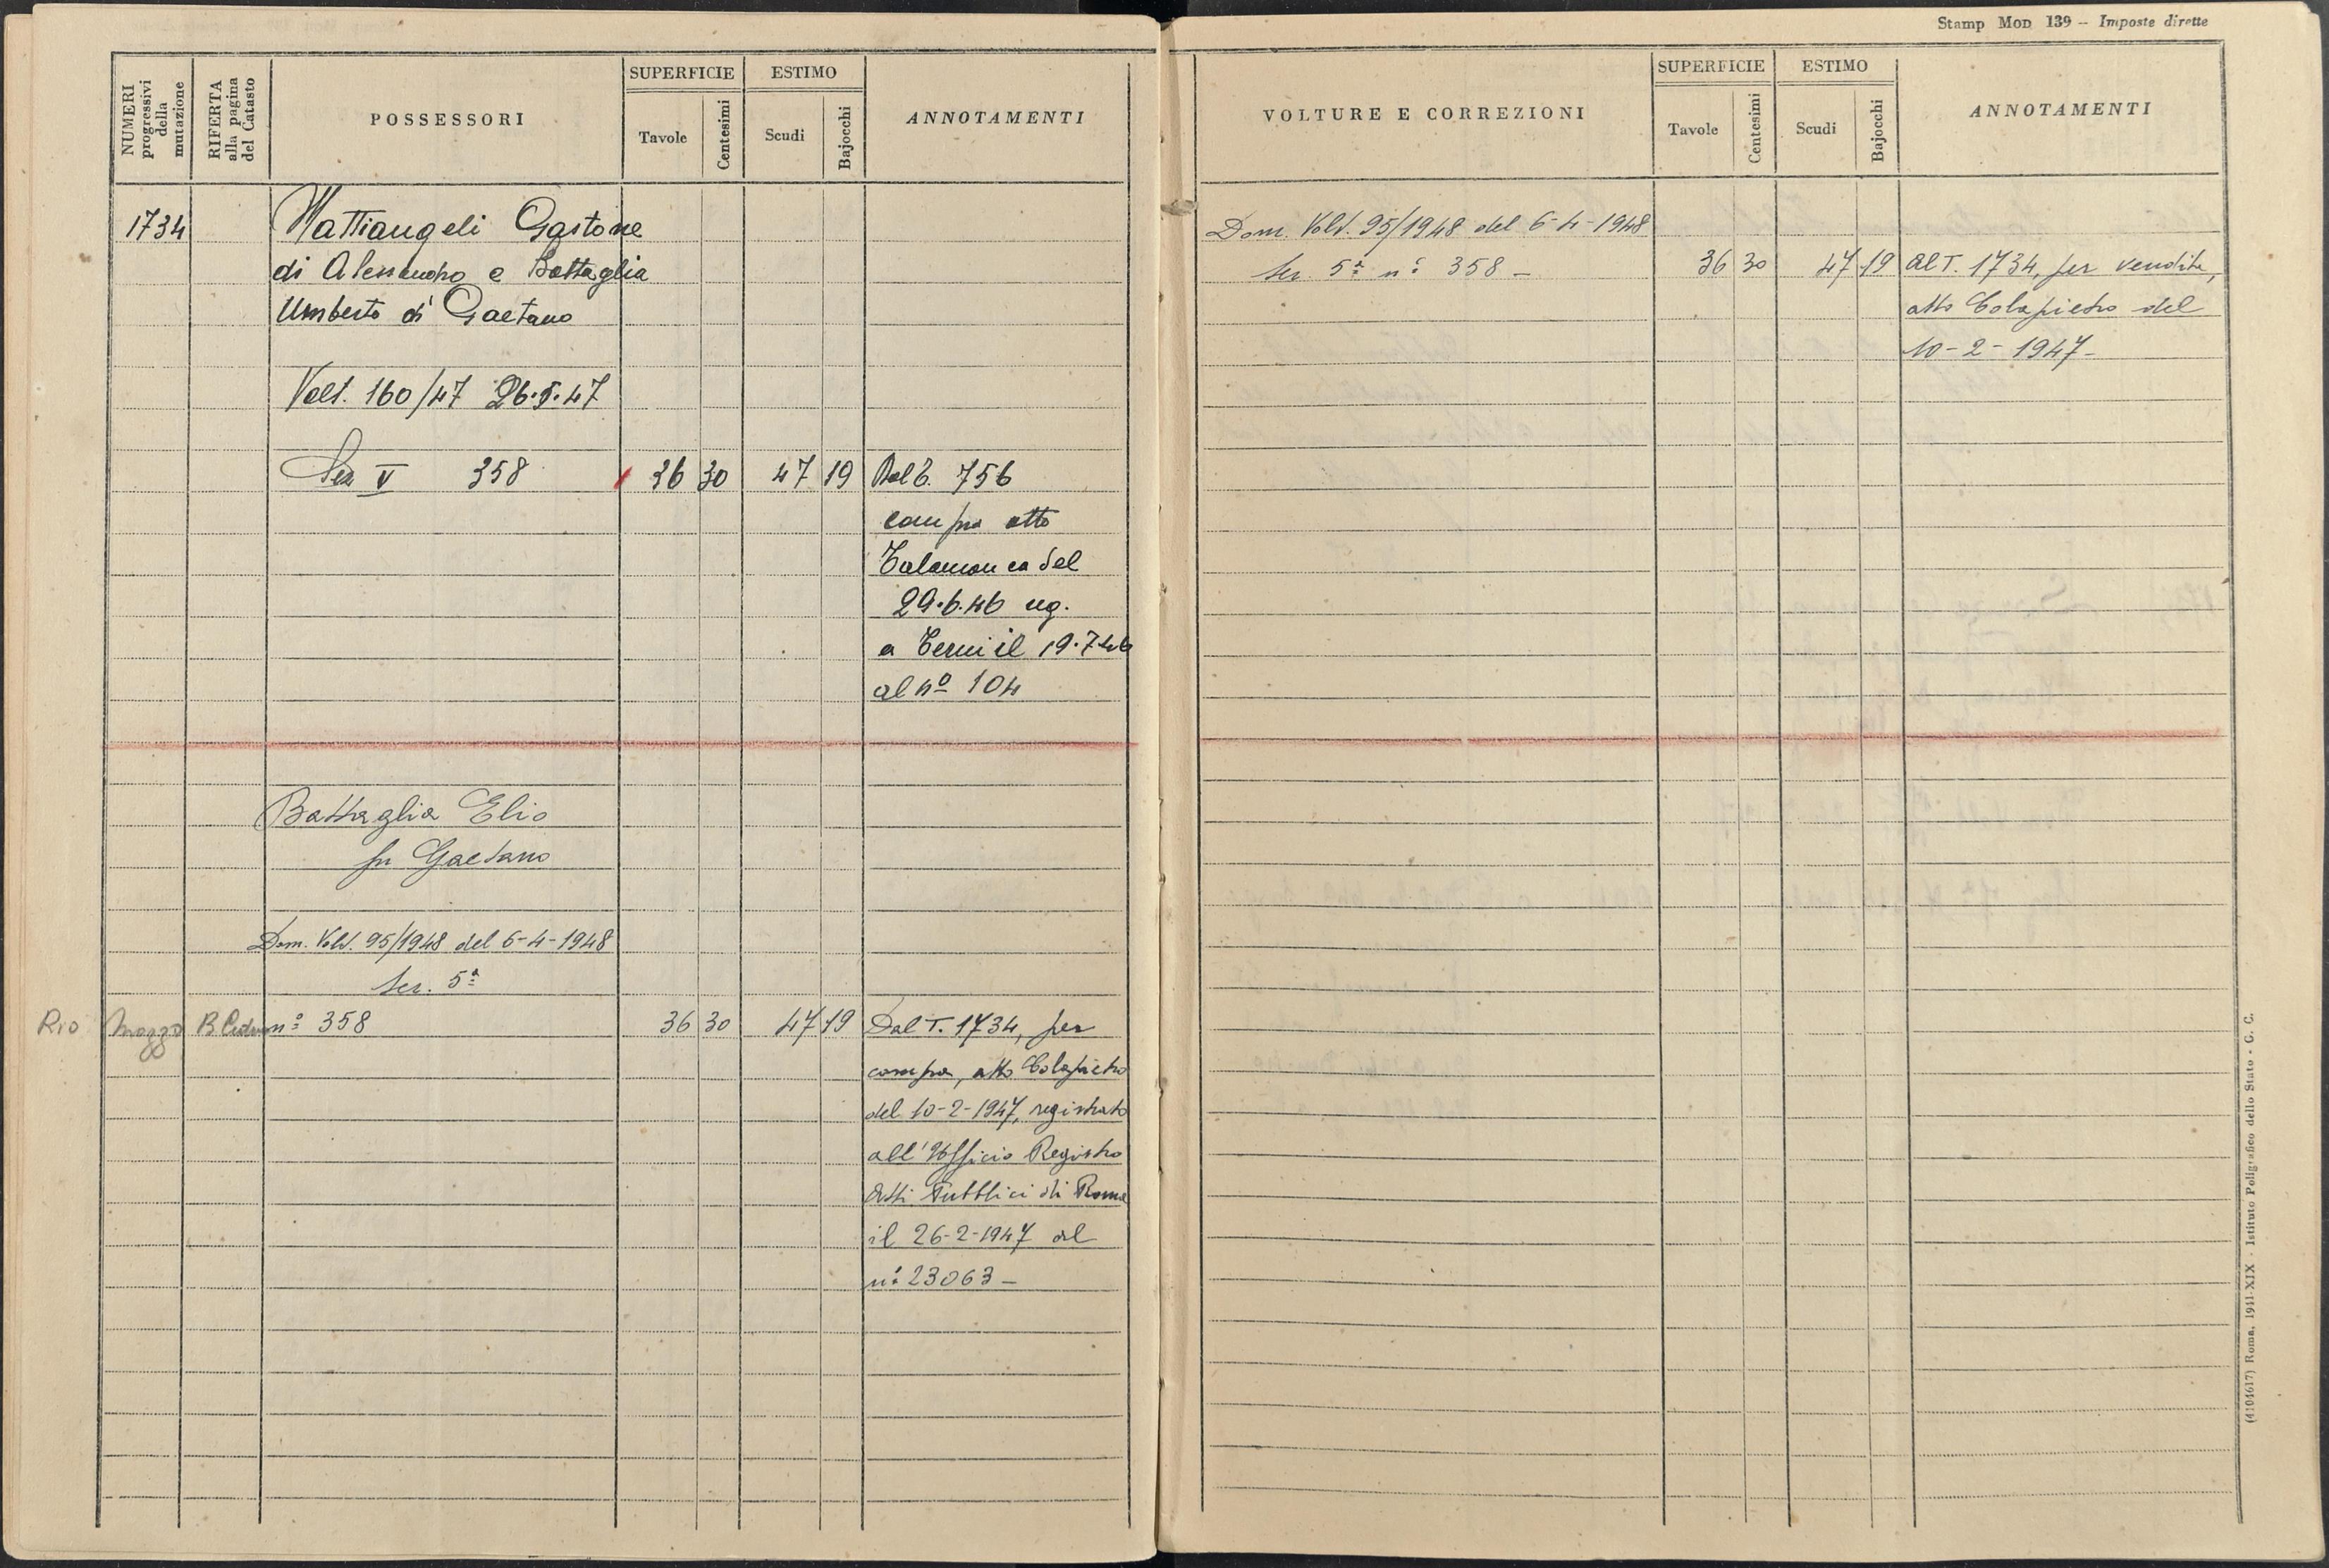 NUMERI progressivi della mutazione
RIFERTA alla pagina del Catasto
POSSESSORI
SUPERFICIE
Tavole
Centesimi
ESTIMO
Scudi
Bajocchi
ANNOTAMENTI
1734
Mattiangeli Gastone
di Alessandro e Battaglia
Umberto di Gaetano
Volt. 160/47 26.5.47
Sez V 358 36 30 47 19 Dal T. 756
compra atto
Talamonca del
29.6.46 reg.
a Terni il 19.7.46
al nº 104
Battaglia Elio
fu Gaetano
Dom. Volt. 95/1948 del 6-4-1948
Sez. 5ª
Rio Mazzo nº 358 36 30 47 19 Dal T. 1734, per
compra, atto Colapietro
del 10-2-1947, registrato
all'Ufficio Registro
Atti Pubblici di Roma
il 26-2-1947 al
nº 23063 -
Stamp Mod 139 - Imposte dirette
VOLTURE E CORREZIONI
SUPERFICIE
Tavole
Centesimi
ESTIMO
Scudi
Bajocchi
ANNOTAMENTI
Dom. Volt. 95/1948 del 6-4-1948
Sez. 5ª nº 358 - 36 30 47 19 Al T. 1734, per vendita,
atto Colapietro del
10-2-1947-
(4104617) Roma, 1941-XIX - Istituto Poligrafico dello Stato - G. C.